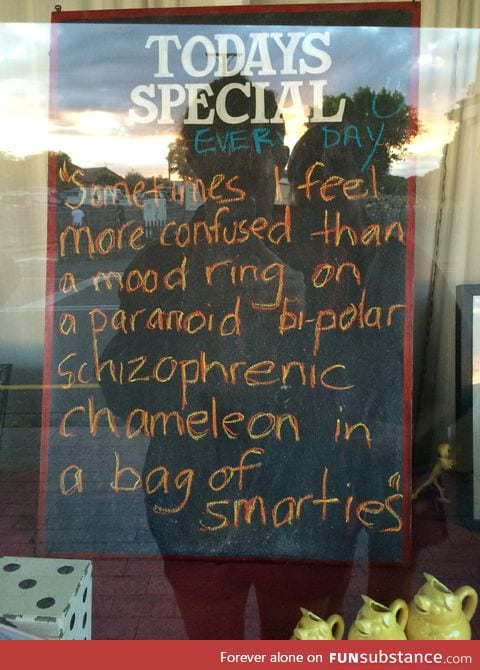 TODAYS
SPECIAL
EVERY DAY
"Sometimes I feel
more confused than
a mood ring on
a paranoid bi-polar
schizophrenic
chameleon in
a bag of
smarties"
Forever alone on FUNsubstance.com